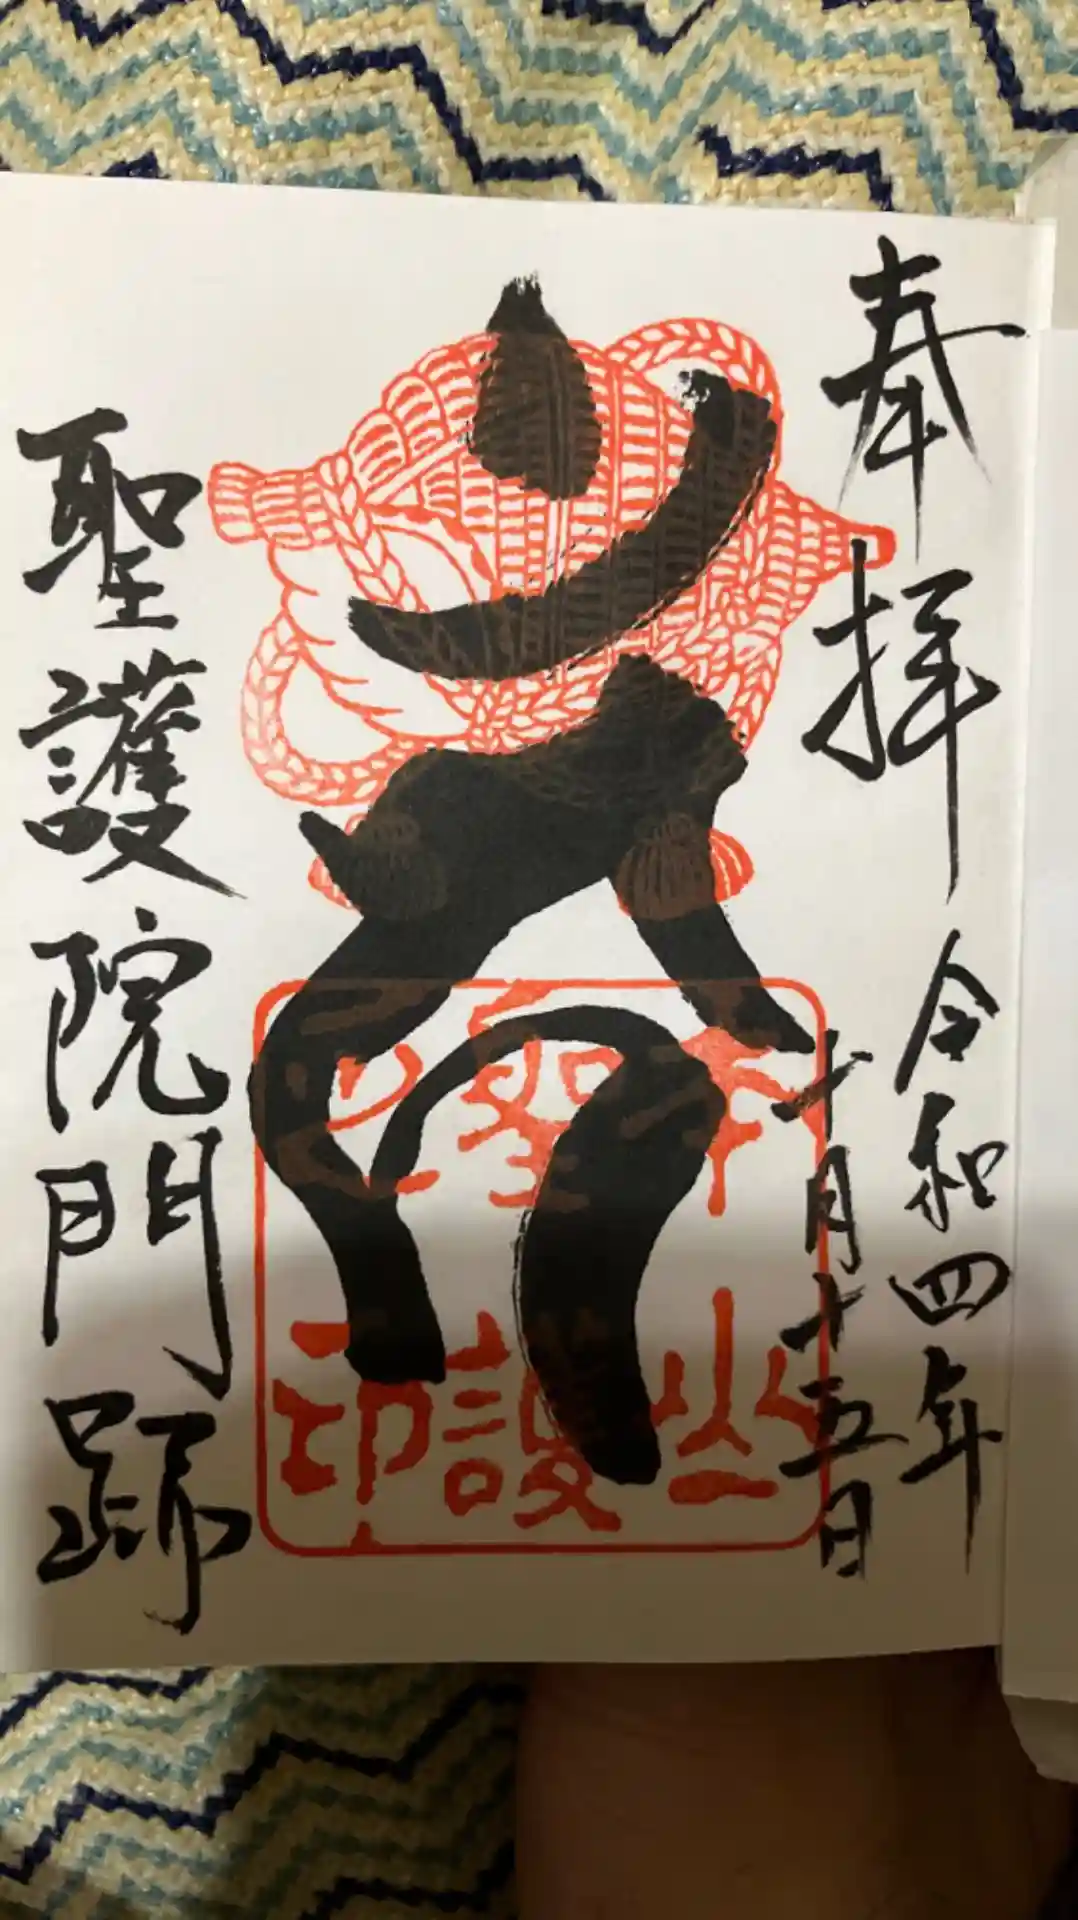 奉拝
令和四年
十月十五日
聖護
聖護院門跡